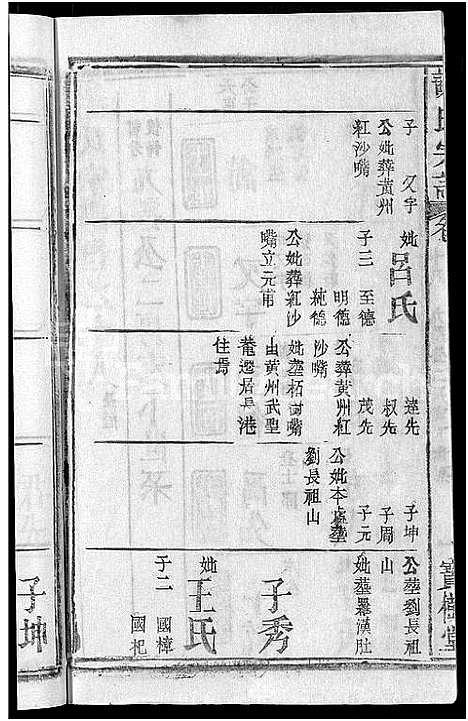 子 久字
公妣葬黄州
紅沙嘴
妣
呂氏
子三 至德
明德
純德
公妣葬紅沙
嘴立元甫
達先
叔先
茂先
公葬黄州紅
沙嘴
妣塟柘樹嘴
由黄州武聖
菴遷居貝港
住焉
子坤
子周
子元
公妣本處塟
劉長祖山
公塟劉長祖
山
妣塟羅漢肚
子秀
妣
王氏
子二 國樟
國杞
寶樹堂
子坤